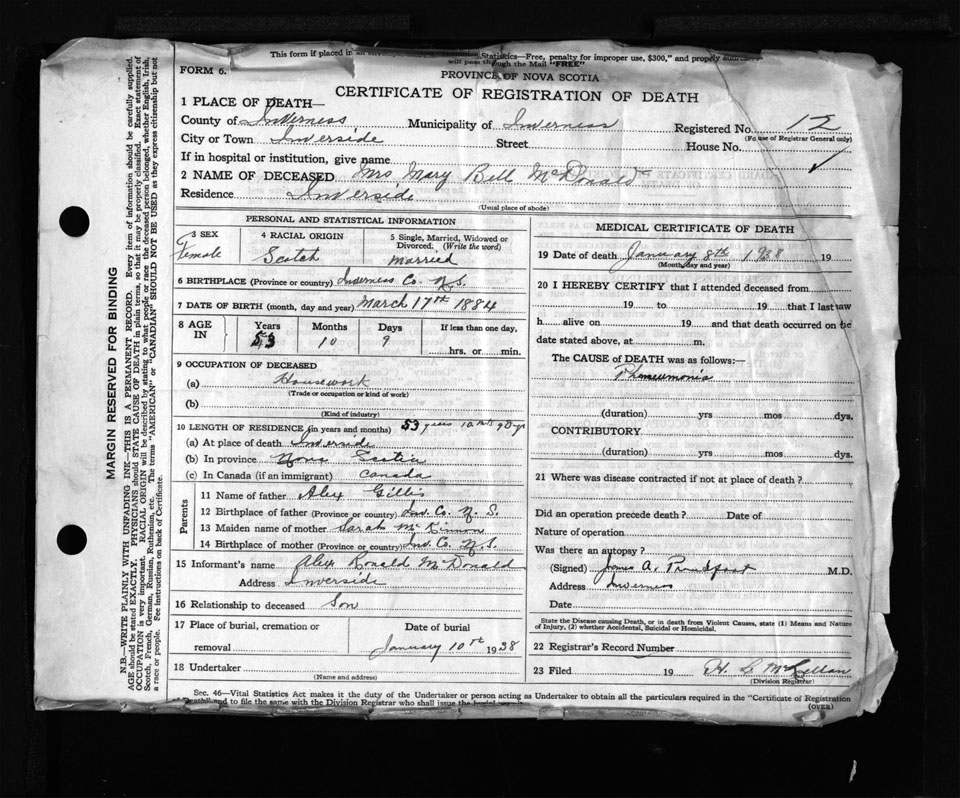 This form if placed in an Statistics—Free, penalty for improper use, $300," and properly
will pass through the Mail "FREE"
FORM 6.
PROVINCE OF NOVA SCOTIA
CERTIFICATE OF REGISTRATION OF DEATH
1 PLACE OF DEATH—
County of Inverness Municipality of Inverness Registered No. 12
(For use of Registrar General only)
City or Town Inverside Street House No.
If in hospital or institution, give name
2 NAME OF DECEASED Mrs Mary Bell McDonald
Residence Inverside
(Usual place of abode)
PERSONAL AND STATISTICAL INFORMATION
3 SEX Female
4 RACIAL ORIGIN Scotch
5 Single, Married, Widowed or Divorced. (Write the word) Married
6 BIRTHPLACE (Province or country) Inverness Co. N.S.
7 DATE OF BIRTH (month, day and year) March 17th 1884
8 AGE IN Years 53 Months 10 Days 9 If less than one day, hrs. or min.
9 OCCUPATION OF DECEASED
(a) Housework
(Trade or occupation or kind of work)
(b)
(Kind of industry)
10 LENGTH OF RESIDENCE (in years and months) 53 years 10 mts 9 Days
(a) At place of death Inverside
(b) In province Nova Scotia
(c) In Canada (if an immigrant) Canada
Parents
11 Name of father Alex Gillis
12 Birthplace of father (Province or country) Inv. Co. N. S.
13 Maiden name of mother Sarah McKinnon
14 Birthplace of mother (Province or country) Inv. Co. N.S.
15 Informant's name Alex Ronald McDonald
Address Inverside
16 Relationship to deceased Son
17 Place of burial, cremation or removal Date of burial
January 10th 1938
18 Undertaker
(Name and address)
MEDICAL CERTIFICATE OF DEATH
19 Date of death January 8th 1938 19
(Month, day and year)
20 I HEREBY CERTIFY that I attended deceased from
19 to 19 that I last saw
h alive on 19 and that death occurred on the
date stated above, at m.
The CAUSE of DEATH was as follows:—
Phneumonia
(duration) yrs mos dys.
CONTRIBUTORY
(duration) yrs mos dys.
21 Where was disease contracted if not at place of death?
Did an operation precede death? Date of
Nature of operation
Was there an autopsy?
(Signed) James A. Proudfoot M.D.
Address Inverness
Date
State the Disease causing Death, or in death from Violent Causes, state (1) Means and Nature
of Injury, (2) whether Accidental, Suicidal or Homicidal.
22 Registrar's Record Number
23 Filed 19 McLellan
(Division Registrar)
Sec. 46—Vital Statistics Act makes it the duty of the Undertaker or person acting as Undertaker to obtain all the particulars required in the "Certificate of Registration
Death" and to file the same with the Division Registrar who shall issue the burial
(OVER)
MARGIN RESERVED FOR BINDING
N.B.—WRITE PLAINLY WITH UNFADING INK—THIS IS A PERMANENT RECORD. Every item of information should be carefully supplied.
AGE should be stated EXACTLY. PHYSICIANS should STATE CAUSE OF DEATH in plain terms, so that it may be properly classified. Exact statement of
OCCUPATION is very important. RACIAL ORIGIN will be described by stating to what people or race the deceased person belonged, whether English, Irish,
Scotch, French, German, Russian, Ruthenian, etc. The terms "AMERICAN" or "CANADIAN" SHOULD NOT BE USED as they express citizenship but not
a race or people. See instructions on back of Certificate.